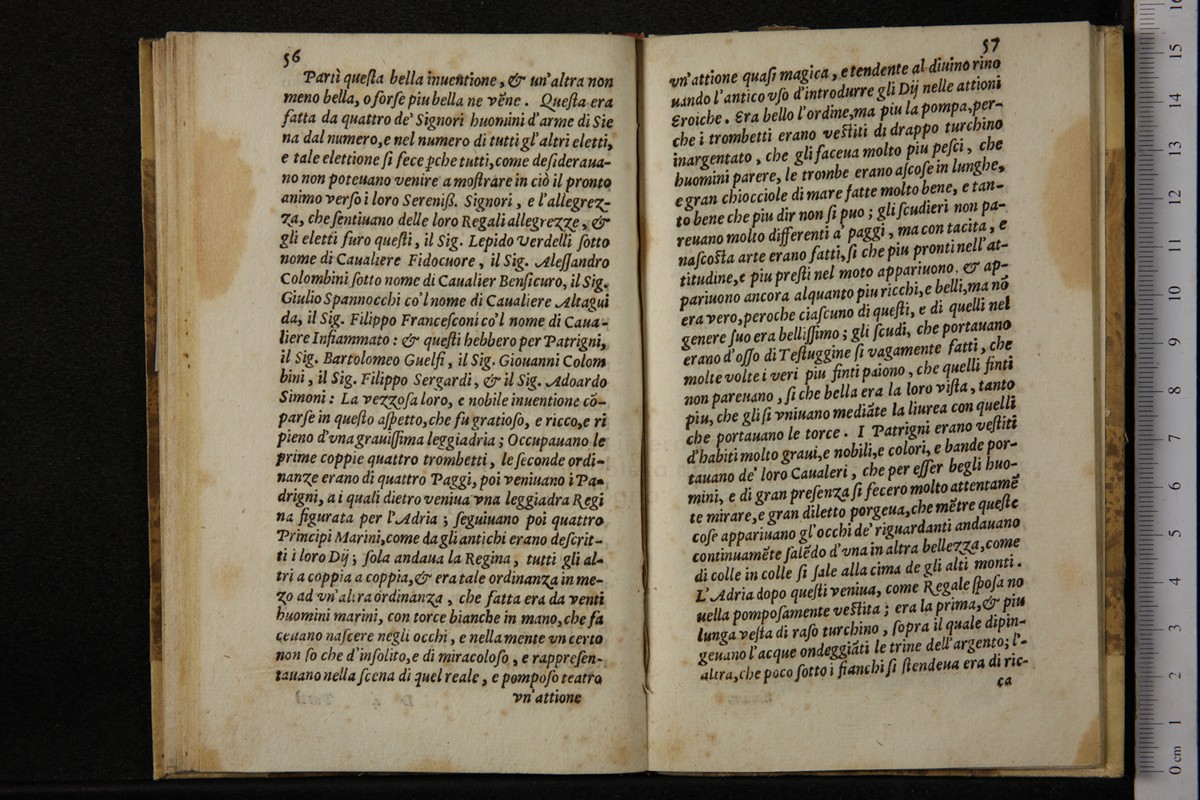 56
Partì queſta bella inuentione, & un'altra non
meno bella, o forſe piu bella ne vēne. Queſta era
fatta da quattro de' Signori huomini d'arme di Sie
na dal numero, e nel numero di tutti gl'altri eletti,
e tale elettione ſi fece ꝑche tutti, come deſideraua-
no non poteuano venire a moſtrare in ciò il pronto
animo verſo i loro Sereniß. Signori, e l'allegrez-
za, che ſentiuano delle loro Regali allegrezze, &
gli eletti furo queſti, il Sig. Lepido Verdelli ſotto
nome di Caualiere Fidocuore, il Sig. Aleſſandro
Colombini ſotto nome di Caualier Benſicuro, il Sig.
Giulio Spannocchi co'l nome di Caualiere Altagui
da, il Sig. Filippo Franceſconi co'l nome di Caua-
liere Infiammato: & queſti hebbero per Patrigni,
il Sig. Bartolomeo Guelfi, il Sig. Giouanni Colom
bini, il Sig. Filippo Sergardi, & il Sig. Adoardo
Simoni: La vezzoſa loro, e nobile inuentione cō-
parſe in queſto aſpetto, che fu gratioſo, e ricco, e ri
pieno d'vna grauiſſima leggiadria; Occupauano le
prime coppie quattro trombetti, le ſeconde ordi-
nanze erano di quattro Paggi, poi veniuano i Pa-
drigni, a i quali dietro veniua vna leggiadra Regi
na figurata per l'Adria; ſeguiuano poi quattro
Principi Marini, come da gli antichi erano deſcrit-
ti i loro Dij; ſola andaua la Regina, tutti gli al-
tri a coppia a coppia, & era tale ordinanza in me-
zo ad vn'altra ordinanza, che fatta era da venti
huomini marini, con torce bianche in mano, che fa
ceuano naſcere negli occhi, e nella mente vn certo
non ſo che d'inſolito, e di miracoloſo, e rappreſen-
tauano nella ſcena di quel reale, e pompoſo teatro
vn'attione
57
vn'attione quaſi magica, e tendente al diuino rino
uando l'antico vſo d'introdurre gli Dij nelle attioni
Eroiche. Era bello l'ordine, ma piu la pompa, per-
che i trombetti erano veſtiti di drappo turchino
inargentato, che gli faceua molto piu peſci, che
huomini parere, le trombe erano aſcoſe in lunghe,
e gran chiocciole di mare fatte molto bene, e tan-
to bene che piu dir non ſi puo; gli ſcudieri non pa-
reuano molto differenti a' paggi, ma con tacita, e
naſcoſta arte erano fatti, ſi che piu pronti nell'at-
titudine, e piu preſti nel moto appariuono. & ap-
pariuono ancora alquanto piu ricchi, e belli, ma nō
era vero, peroche ciaſcuno di queſti, e di quelli nel
genere ſuo era belliſſimo; gli ſcudi, che portauano
erano d'oſſo di Teſtuggine ſi vagamente fatti, che
molte volte i veri piu finti paiono, che quelli finti
non pareuano, ſi che bella era la loro viſta, tanto
piu, che gli ſi vniuano mediāte la liurea con quelli
che portauano le torce. I Patrigni erano veſtiti
d'habiti molto graui, e nobili, e colori, e bande por-
tauano de' loro Caualeri, che per eſſer begli huo-
mini, e di gran preſenza ſi fecero molto attentamē
te mirare, e gran diletto porgeua, che mētre queſte
coſe appariuano gl'occhi de' riguardanti andauano
continuamēte ſalēdo d'vna in altra bellezza, come
di colle in colle ſi ſale alla cima de gli alti monti.
L'Adria dopo queſti veniua, come Regale ſpoſa no
uella pompoſamente veſtita; era la prima, & piu
lunga veſta di raſo turchino, ſopra il quale dipin-
geuano l'acque ondeggiāti le trine dell'argento; l'-
altra, che poco ſotto i fianchi ſi ſtendeua era di ric-
ca
0 cm 1 2 3 4 5 6 7 8 9 10 11 12 13 14 15 16